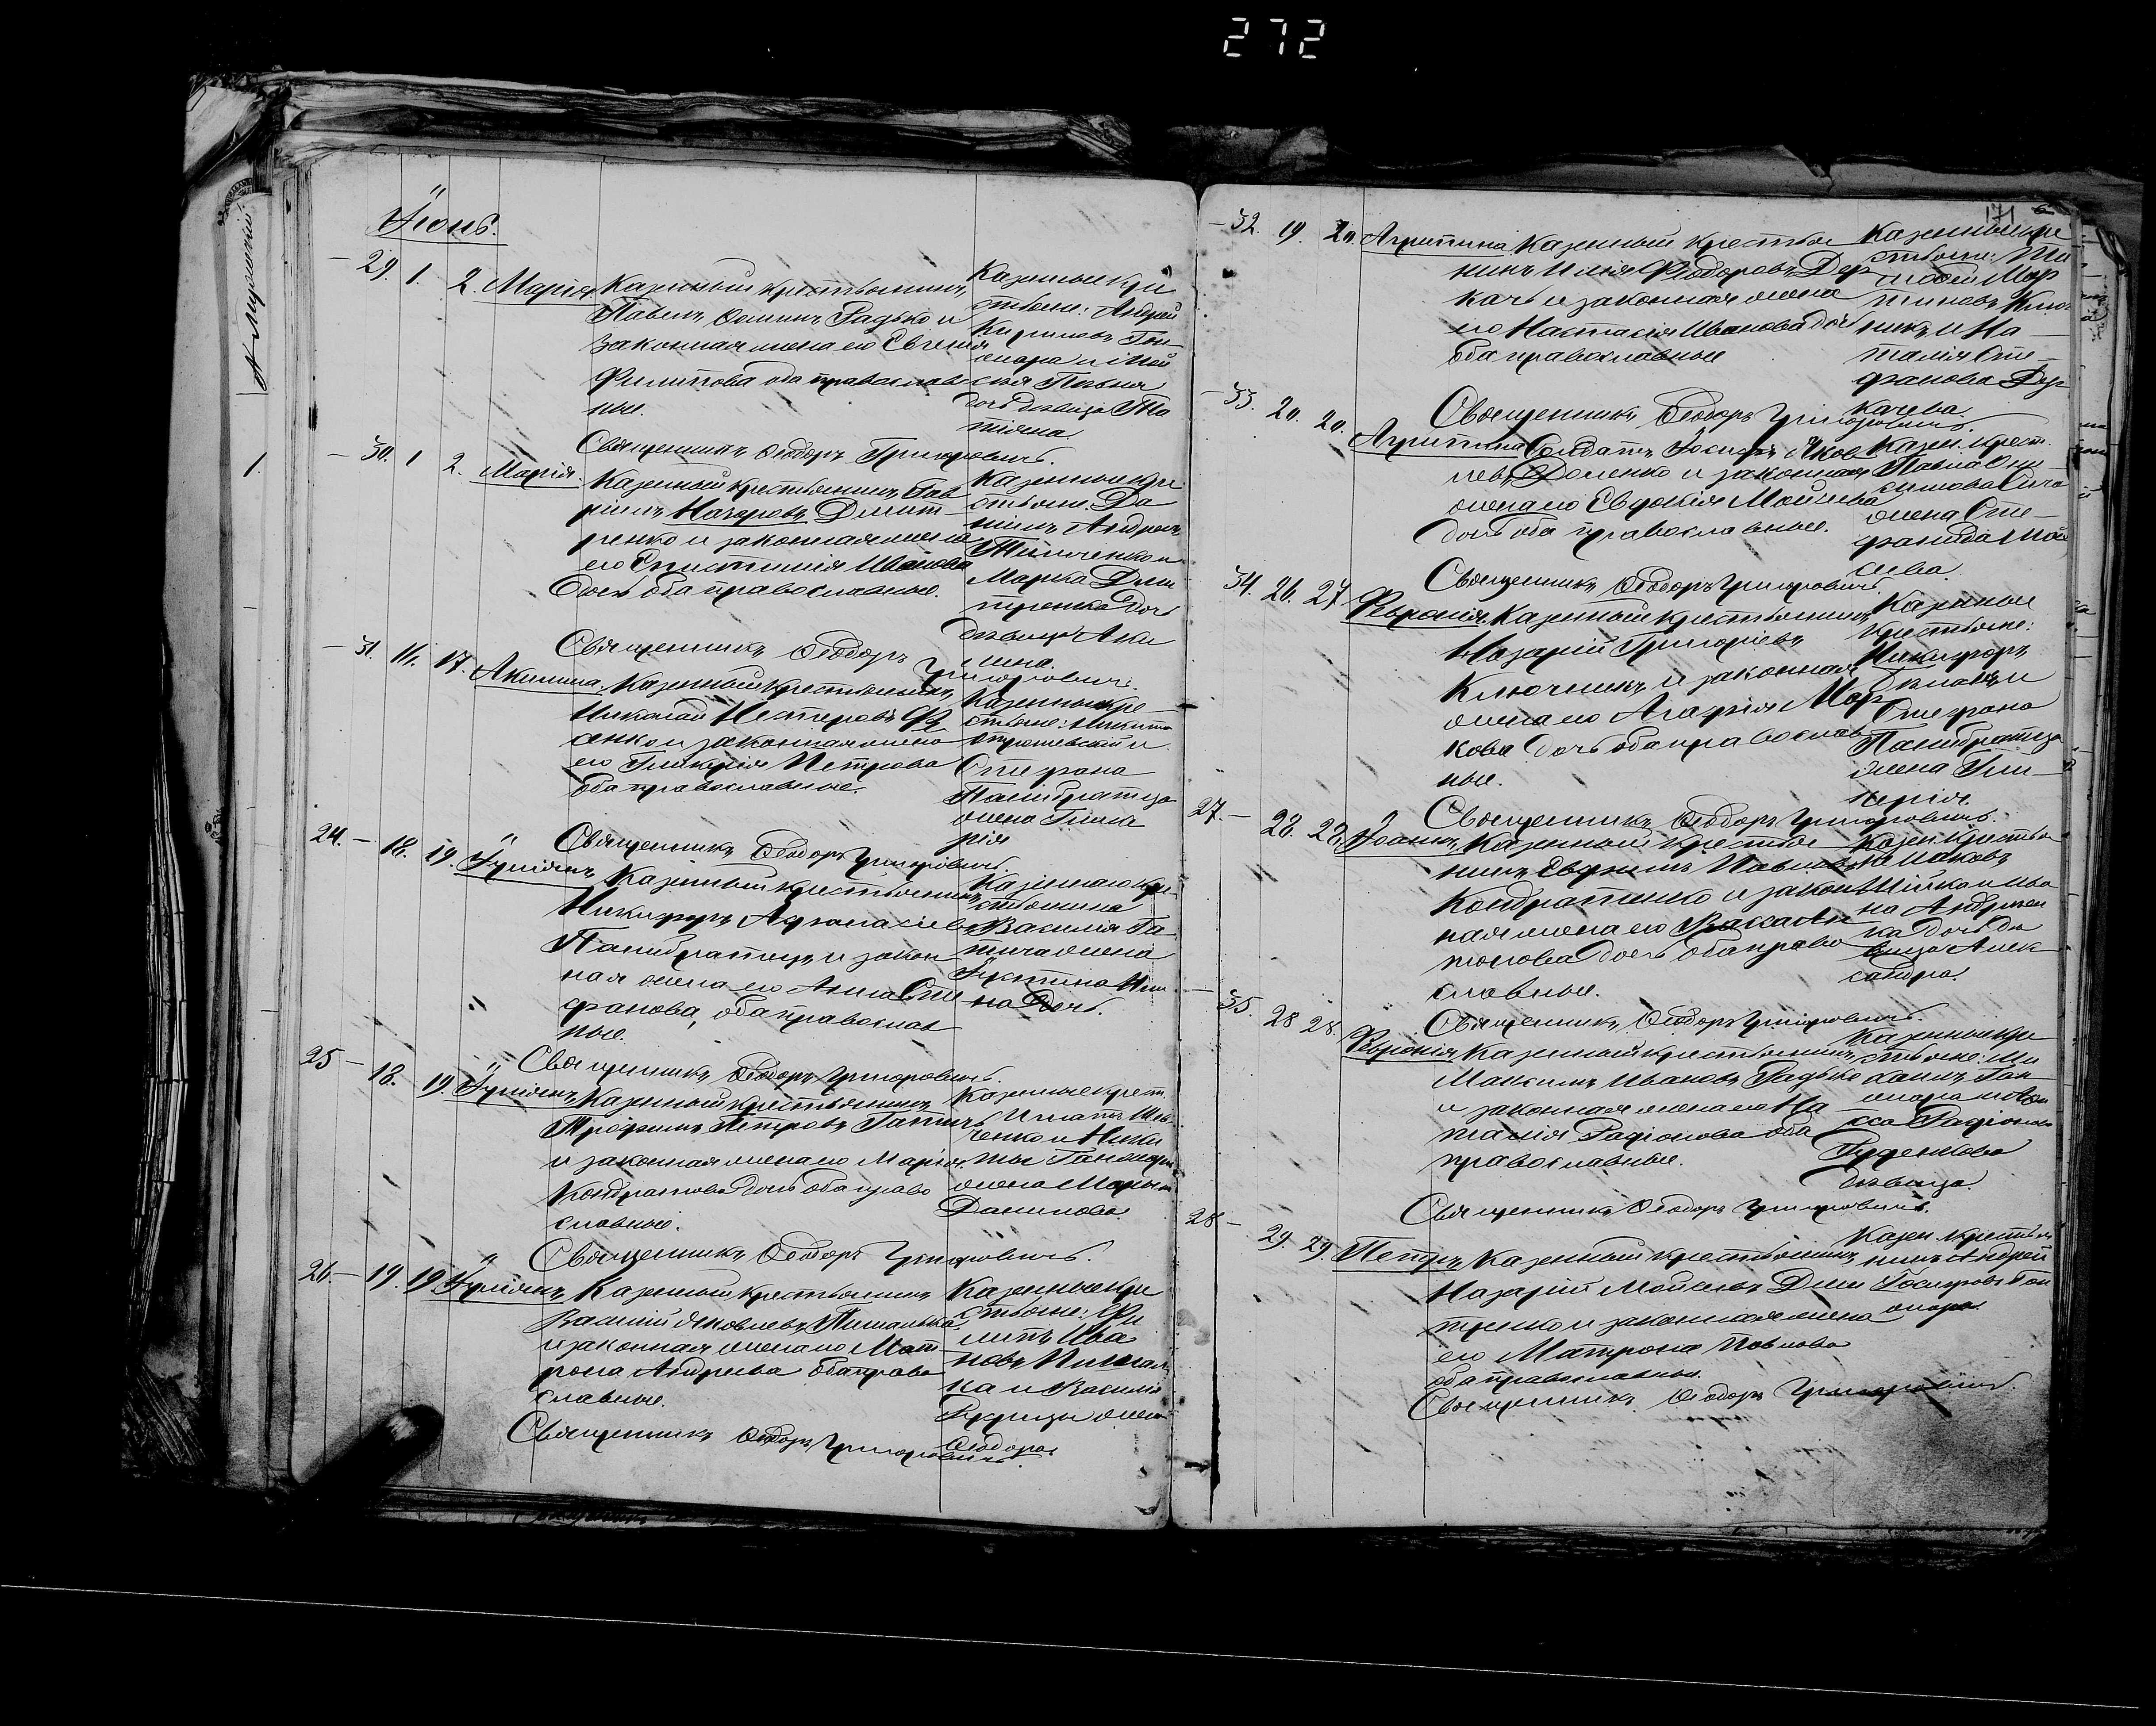 272
171
Іюнь.
29. 1. 2. Марія
Казенный крестьянинъ
Павелъ Радько и
законная жена его Евгенія
Филипова оба православ
ные.
Казенные кре
стьяне: Андрей
Кириловъ Гон
дочь девица Та
тіяна.
Священникъ Ѳеодоръ Григоровичъ.
30. 1 2. Марія.
Казенный крестьянинъ Гав
рилъ Назаровъ Дмит
ренко и законная жена
его Епистинія Иванова
дочь оба православные.
Казенные кре
стьяне: Да
нилъ Андреевъ
Марка Дми
тренка дочь
девица Аки
лина.
Священникъ Ѳеодоръ Григоровичъ.
31. 17. Акилина.
Казенный крестьянинъ
Николай Нестеровъ
сенко и законная жена
его Гликерія Петрова
оба православные.
Казенные кре
стьяне: Никита
Стефана
Панибратца
жена Глике
рія
Священникъ Ѳеодоръ Григоровичъ.
24. – 18. 19. Іуліянъ
Казенный крестьянинъ
Никифоръ Афонасіевъ
Панибратецъ и закон
ная жена его Анна Сте
фанова, оба православ
ные.
Казеннаго кре
стьянина
Василія Га
жена
Іустина
на дочь.
Священникъ Ѳеодоръ Григоровичъ.
25 – 18. 19. Іуліянъ
Казенный крестьянинъ
Трофимъ Петровъ
и законная жена его Марія
Кондратова дочь оба право
славные.
Казенные крест.
Игнатъ
ченко и Ники
ты
жена Марья
Данилова.
Священникъ Ѳеодоръ Григоровичъ.
26. – 19. 19 Іуліянъ
Казенный крестьянинъ
Василій Яковлевъ
и законная жена его Мат
рона Андреева оба право
славные.
Казенные кре
стьяне: Фи
липъ Ива
новъ
ка и Василія
жена
Ѳеодора
Священникъ Ѳеодоръ Григоровичъ.
32. 19. 20. Агрипина
Казенный крестья
нинъ Илія Феодоровъ Дер
качъ и законная жена
его Настасія Иванова дочь
оба православные
Казенные кре
стьяне: Ти
мофей Мар
тиновъ Ключ
никъ и На
талія Сте
фанова Дер
качева.
Священникъ Ѳеодоръ Григоровичъ.
33. 20. 20. Агрипина
Солдатъ Іосифъ Яков
левъ Доленко и законная
жена его Евдокія Мойсеева
дочь оба православные.
Казен. крест.
Павла Они
симова
жена Сте
фанида Мой
сеева.
Священникъ Ѳеодоръ Григоровичъ.
34. 26. 27 Февронія.
Казенный крестьянинъ
Назарій Григоріевъ
Ключникъ и законная
жена его Агафія Мар
кова дочь оба православ
ные.
Казеные
крестьяне:
Никифоръ
Стефана
Панибратца
жена Гли
керія.
Священникъ Ѳеодоръ Григоровичъ.
27. – 28. 28. Іоаннъ
Казенный крестья
нинъ Евфимъ Павловъ
Кондратенко и закон
ная жена его Васса Ан
тонова дочь оба право
славные.
Казен. крестья
не Іаковъ
на Андріен
ка дочь де
вица Алек
сандра.
Священникъ Ѳеодоръ Григоровичъ.
35. 28 28. Февронія
Казенный крестьянинъ
Максимъ Ивановъ Радько
и законная жена его На
талія Радіонова оба
православные.
Казенные кре
стьяне: Ми
хаилъ Гон
Радіонова
девица.
Священникъ Ѳеодоръ Григоровичъ.
28 – 29. 29. Петръ
Казенный крестьянинъ
Назарій Мойсеевъ Дми
тренко и законная жена
его Матрона Павлова
оба православные.
Казен. крестья
нинъ Андрей
Іосифовъ Гон
Священникъ Ѳеодоръ Григоровичъ.